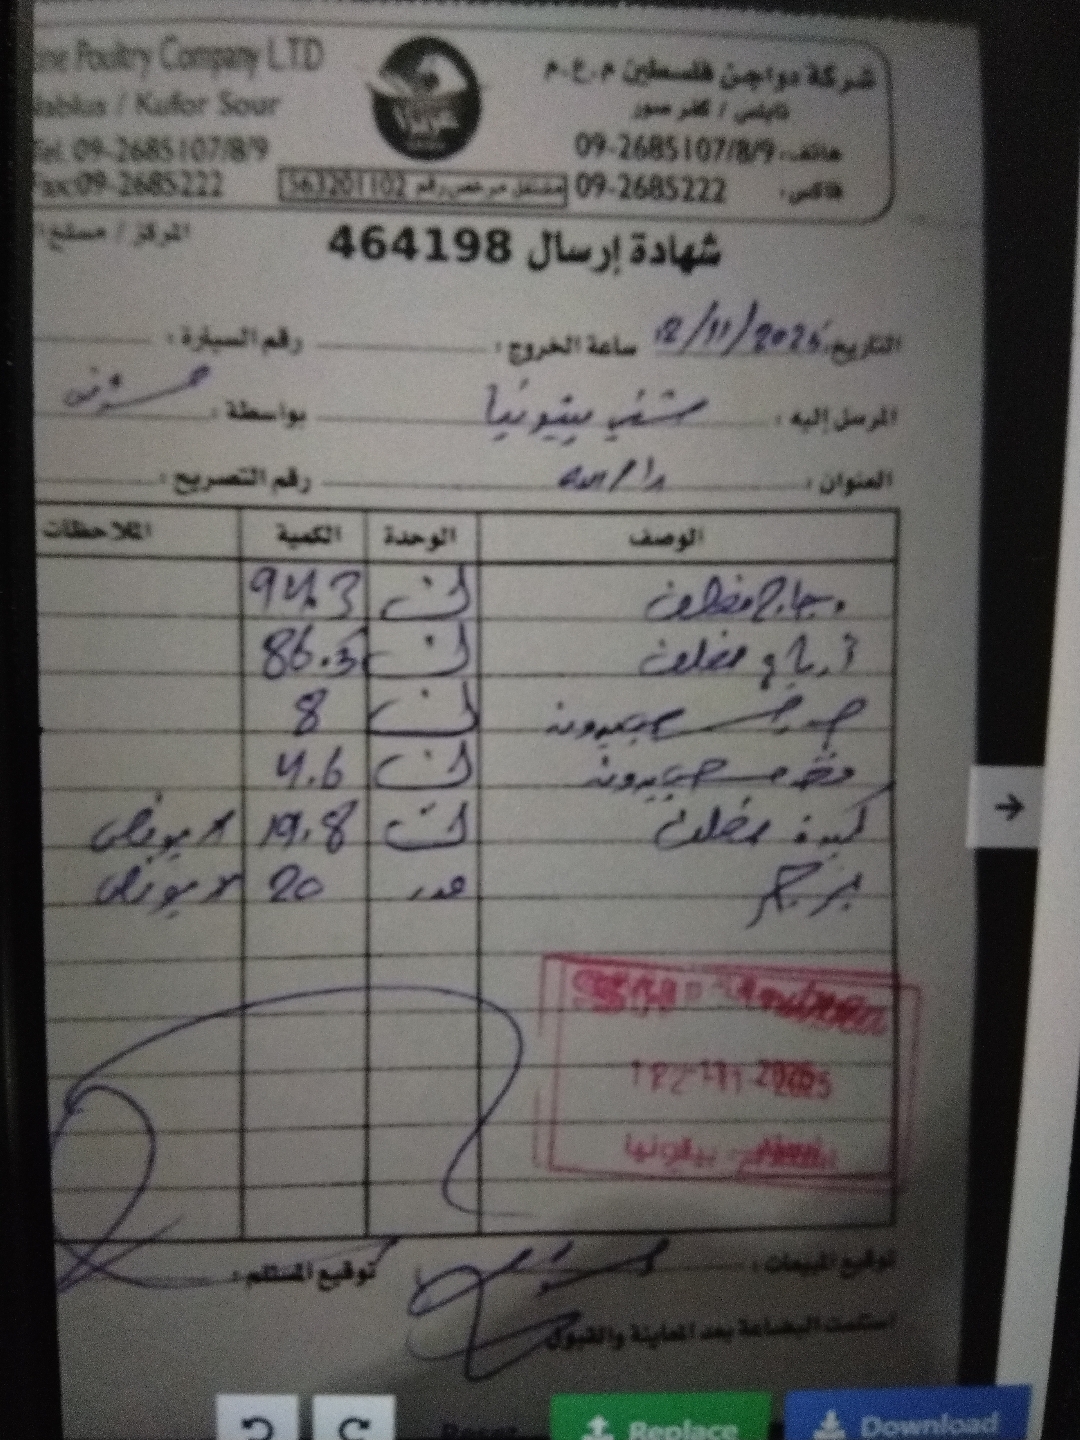 ine Poultry Company LTD
Nablus / Kufor Sour
Tel: 09-2685107/8/9
Fax:09-2685222
شركة دواجن فلسطين م.خ.م
نابلس / كفر صور
هاتف: 09-2685107/8/9
فاكس: 09-2685222
مشتغل مرخص رقم 563201102
شهادة إرسال 464198
المركز / مسلخ:
التاريخ: 12/11/2025 ساعة الخروج: رقم السيارة:
المرسل إليه: بيتونيا بواسطة:
العنوان: رام الله رقم التصريح:
الوصف الوحدة الكمية الملاحظات
دجاج مغلف ك 94.3
أرباع مغلف ك 86.5
ك 8
ك 4.6
كبدة مغلف ك 19.8
برجر عدد 20
12-11-2025
بيتونيا
توقيع المبيعات: توقيع المستلم:
استلمت البضاعة بعد المعاينة والقبول
Reset
Replace
Download